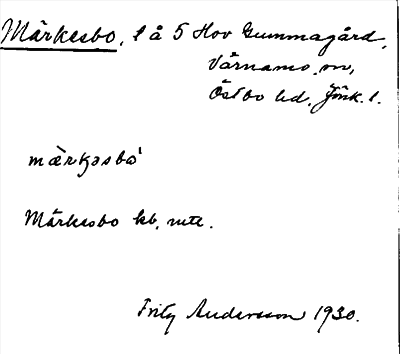 Märkesbo, l å 5 Hov Gummagård,
Värnamo sn,
Östbo hd. Jönk. l.
märkəsbo
Märkesbo kb, mtl.
Fritz Andersson 1930.